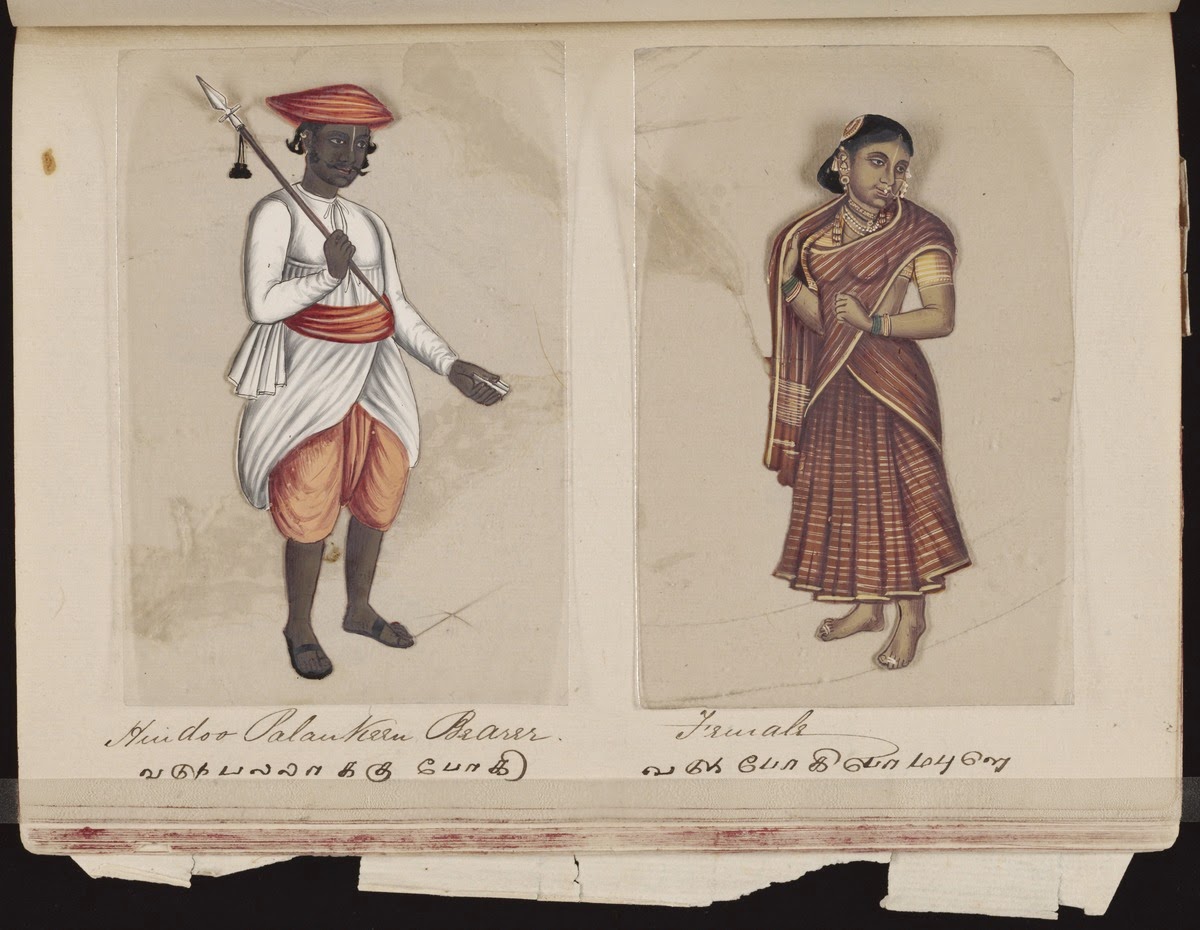 Hindoo Palankeen Bearer.
வடுபலலாககு போகி
Female
வடு போகி பொமபுளை